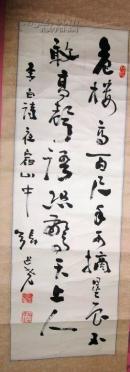 危楼高百尺手可摘星辰不
敢高声语恐惊天上人
李白诗夜宿山中